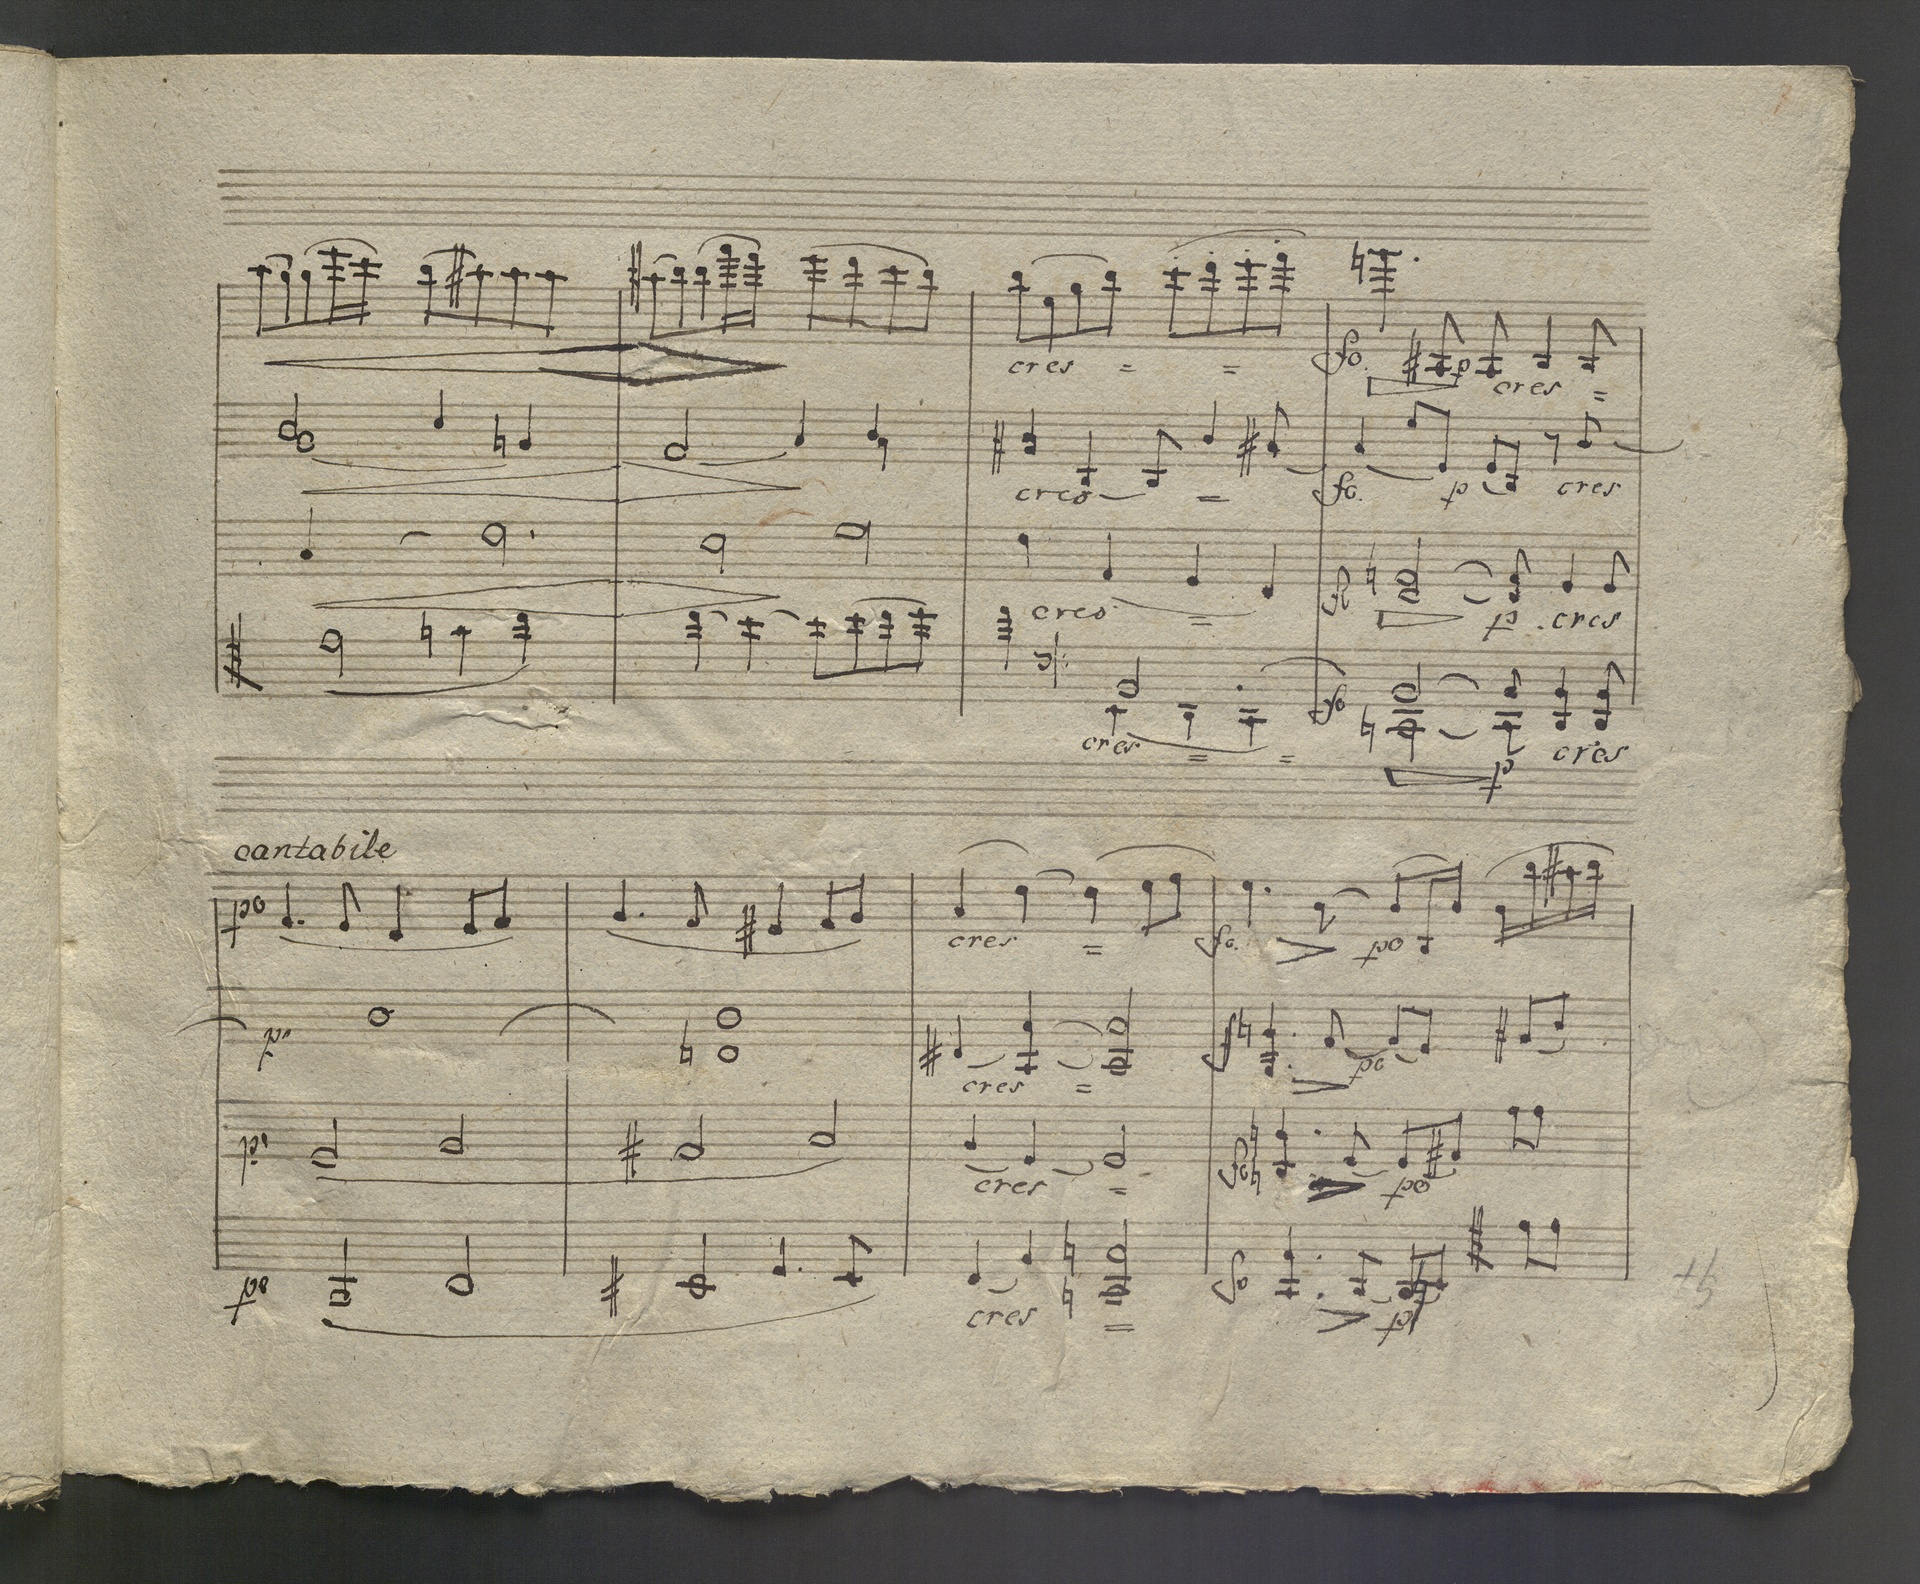 cres = =
fo. p cres =
cres =
fo. p cres
cres =
p. cres
cres = =
fo
cres
p
cantabile
po
cres =
fo. po
cres =
po
cres =
fo po
po
cres =
fo